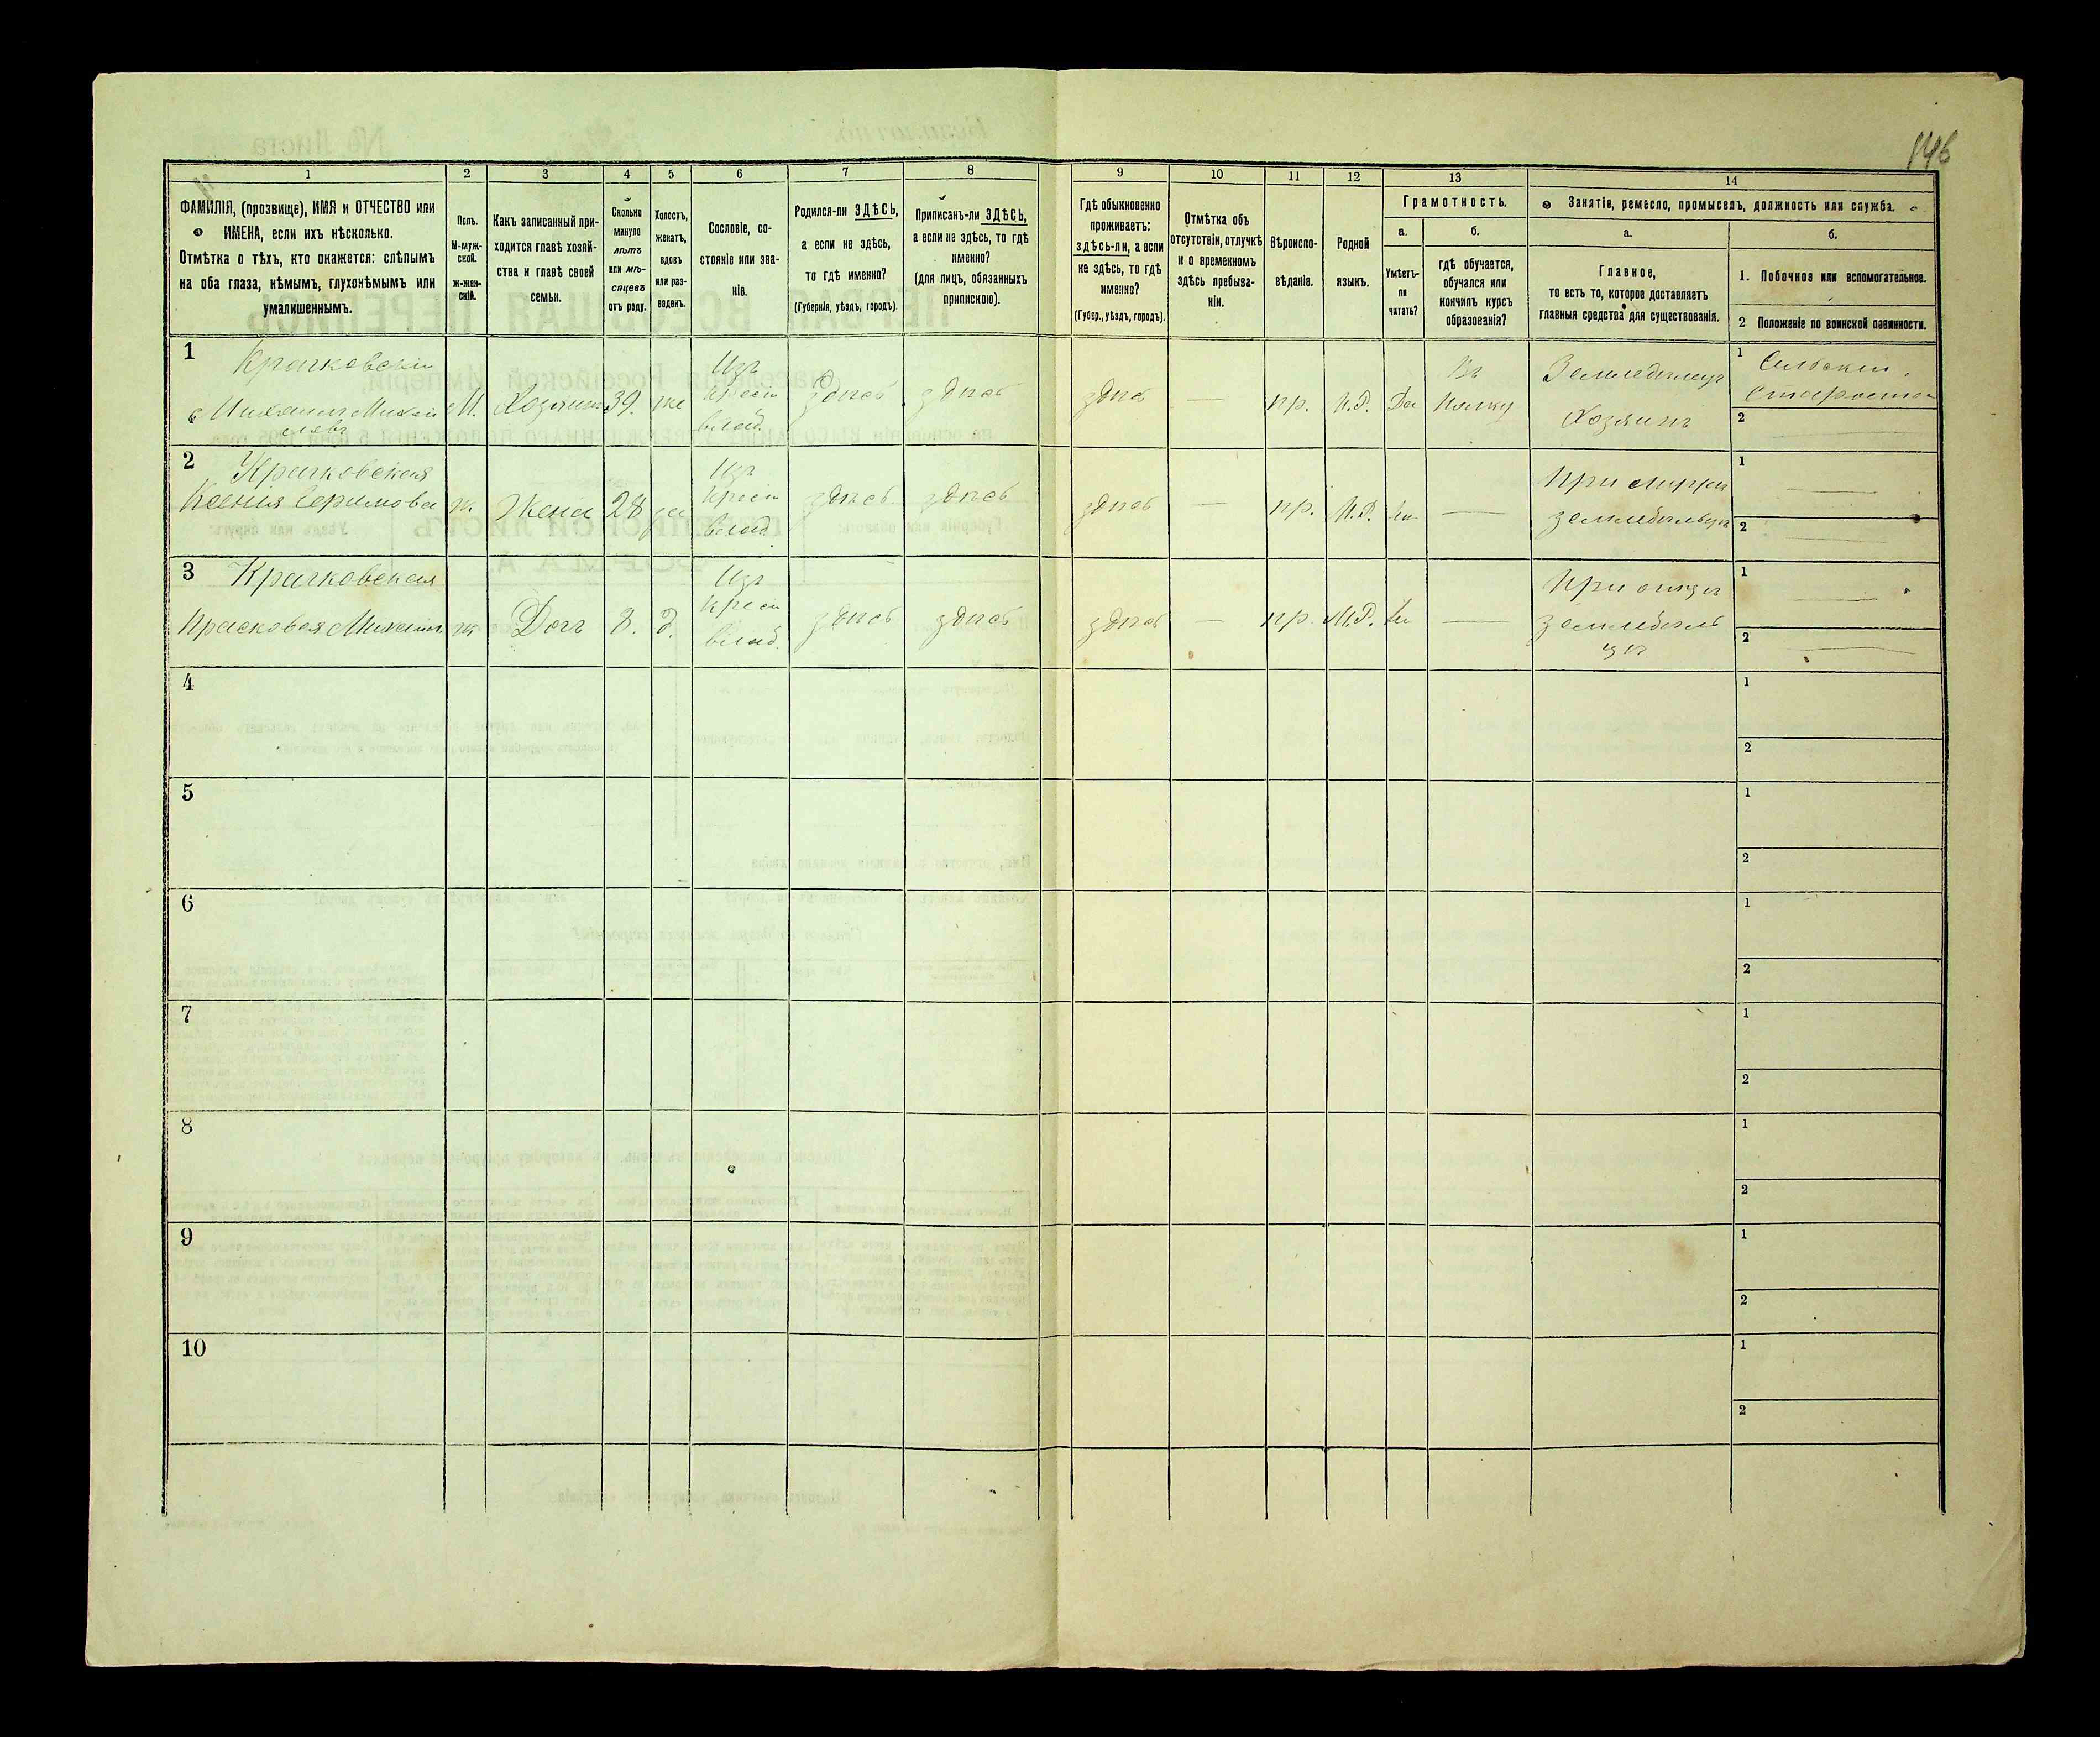 146
1
2
3
4
5
6
7
8
9
10
11
12
13
14
ФАМИЛІЯ, (прозвище), ИМЯ и ОТЧЕСТВО или
ИМЕНА, если ихъ нѣсколько.
Отмѣтка о тѣхъ, кто окажется: слѣпымъ
на оба глаза, нѣмымъ, глухонѣмымъ или
умалишеннымъ.
Полъ.
М-муж-
ской.
ж-жен-
скій.
Какъ записанный при-
ходится главѣ хозяй-
ства и главѣ своей
семьи.
Сколько
минуло
лѣтъ
или мѣ-
сяцевъ
отъ роду.
Холостъ,
женатъ,
вдовъ
или раз-
веденъ.
Сословіе, со-
стояніе или зва-
ніе.
Родился-ли ЗДѢСЬ,
а если не здѣсь,
то гдѣ именно?
(Губернія, уѣздъ, городъ).
Приписанъ-ли ЗДѢСЬ,
а если не здѣсь, то гдѣ
именно?
(для лицъ, обязанныхъ
припискою).
Гдѣ обыкновенно
проживаетъ:
здѣсь-ли, а если
не здѣсь, то гдѣ
именно?
(Губер., уѣздъ, городъ).
Отмѣтка объ
отсутствіи, отлучкѣ
и о временномъ
здѣсь пребыва-
ніи.
Вѣроиспо-
вѣданіе.
Родной
языкъ.
Грамотность.
а.
Умѣетъ-
ли
читать?
б.
гдѣ обучается,
обучался или
кончилъ курсъ
образованія?
Занятіе, ремесло, промыселъ, должность или служба.
а.
Главное,
то есть то, которое доставляетъ
главныя средства для существованія.
б.
1. Побочное или вспомогательное.
2 Положеніе по воинской повинности.
1
Крачковскій
Михаилъ Михаи
ловъ
М.
Хозяинъ
39.
же
Изъ
крест
влад.
здѣсь
здѣсь
здѣсь
—
пр.
М.Р.
Да
Въ
полку
Земледѣлецъ
Хозяинъ
1 Сельскій
Староста
2 —
2
Крачковская
Ксенія
ж.
Жена
28
за
Изъ
крест
влад.
здѣсь
здѣсь
здѣсь
—
пр.
М.Р.
—
При мужѣ
земледѣльцѣ
1 —
2 —
3
Крачковская
Прасковья Михаил.
ж
Дочь
8.
д.
Изъ
крест
влад.
здѣсь
здѣсь
здѣсь
—
пр.
М.Р.
—
При отцѣ
земледѣль
цѣ
1 —
2 —
4
1
2
5
1
2
6
1
2
7
1
2
8
1
2
9
1
2
10
1
2